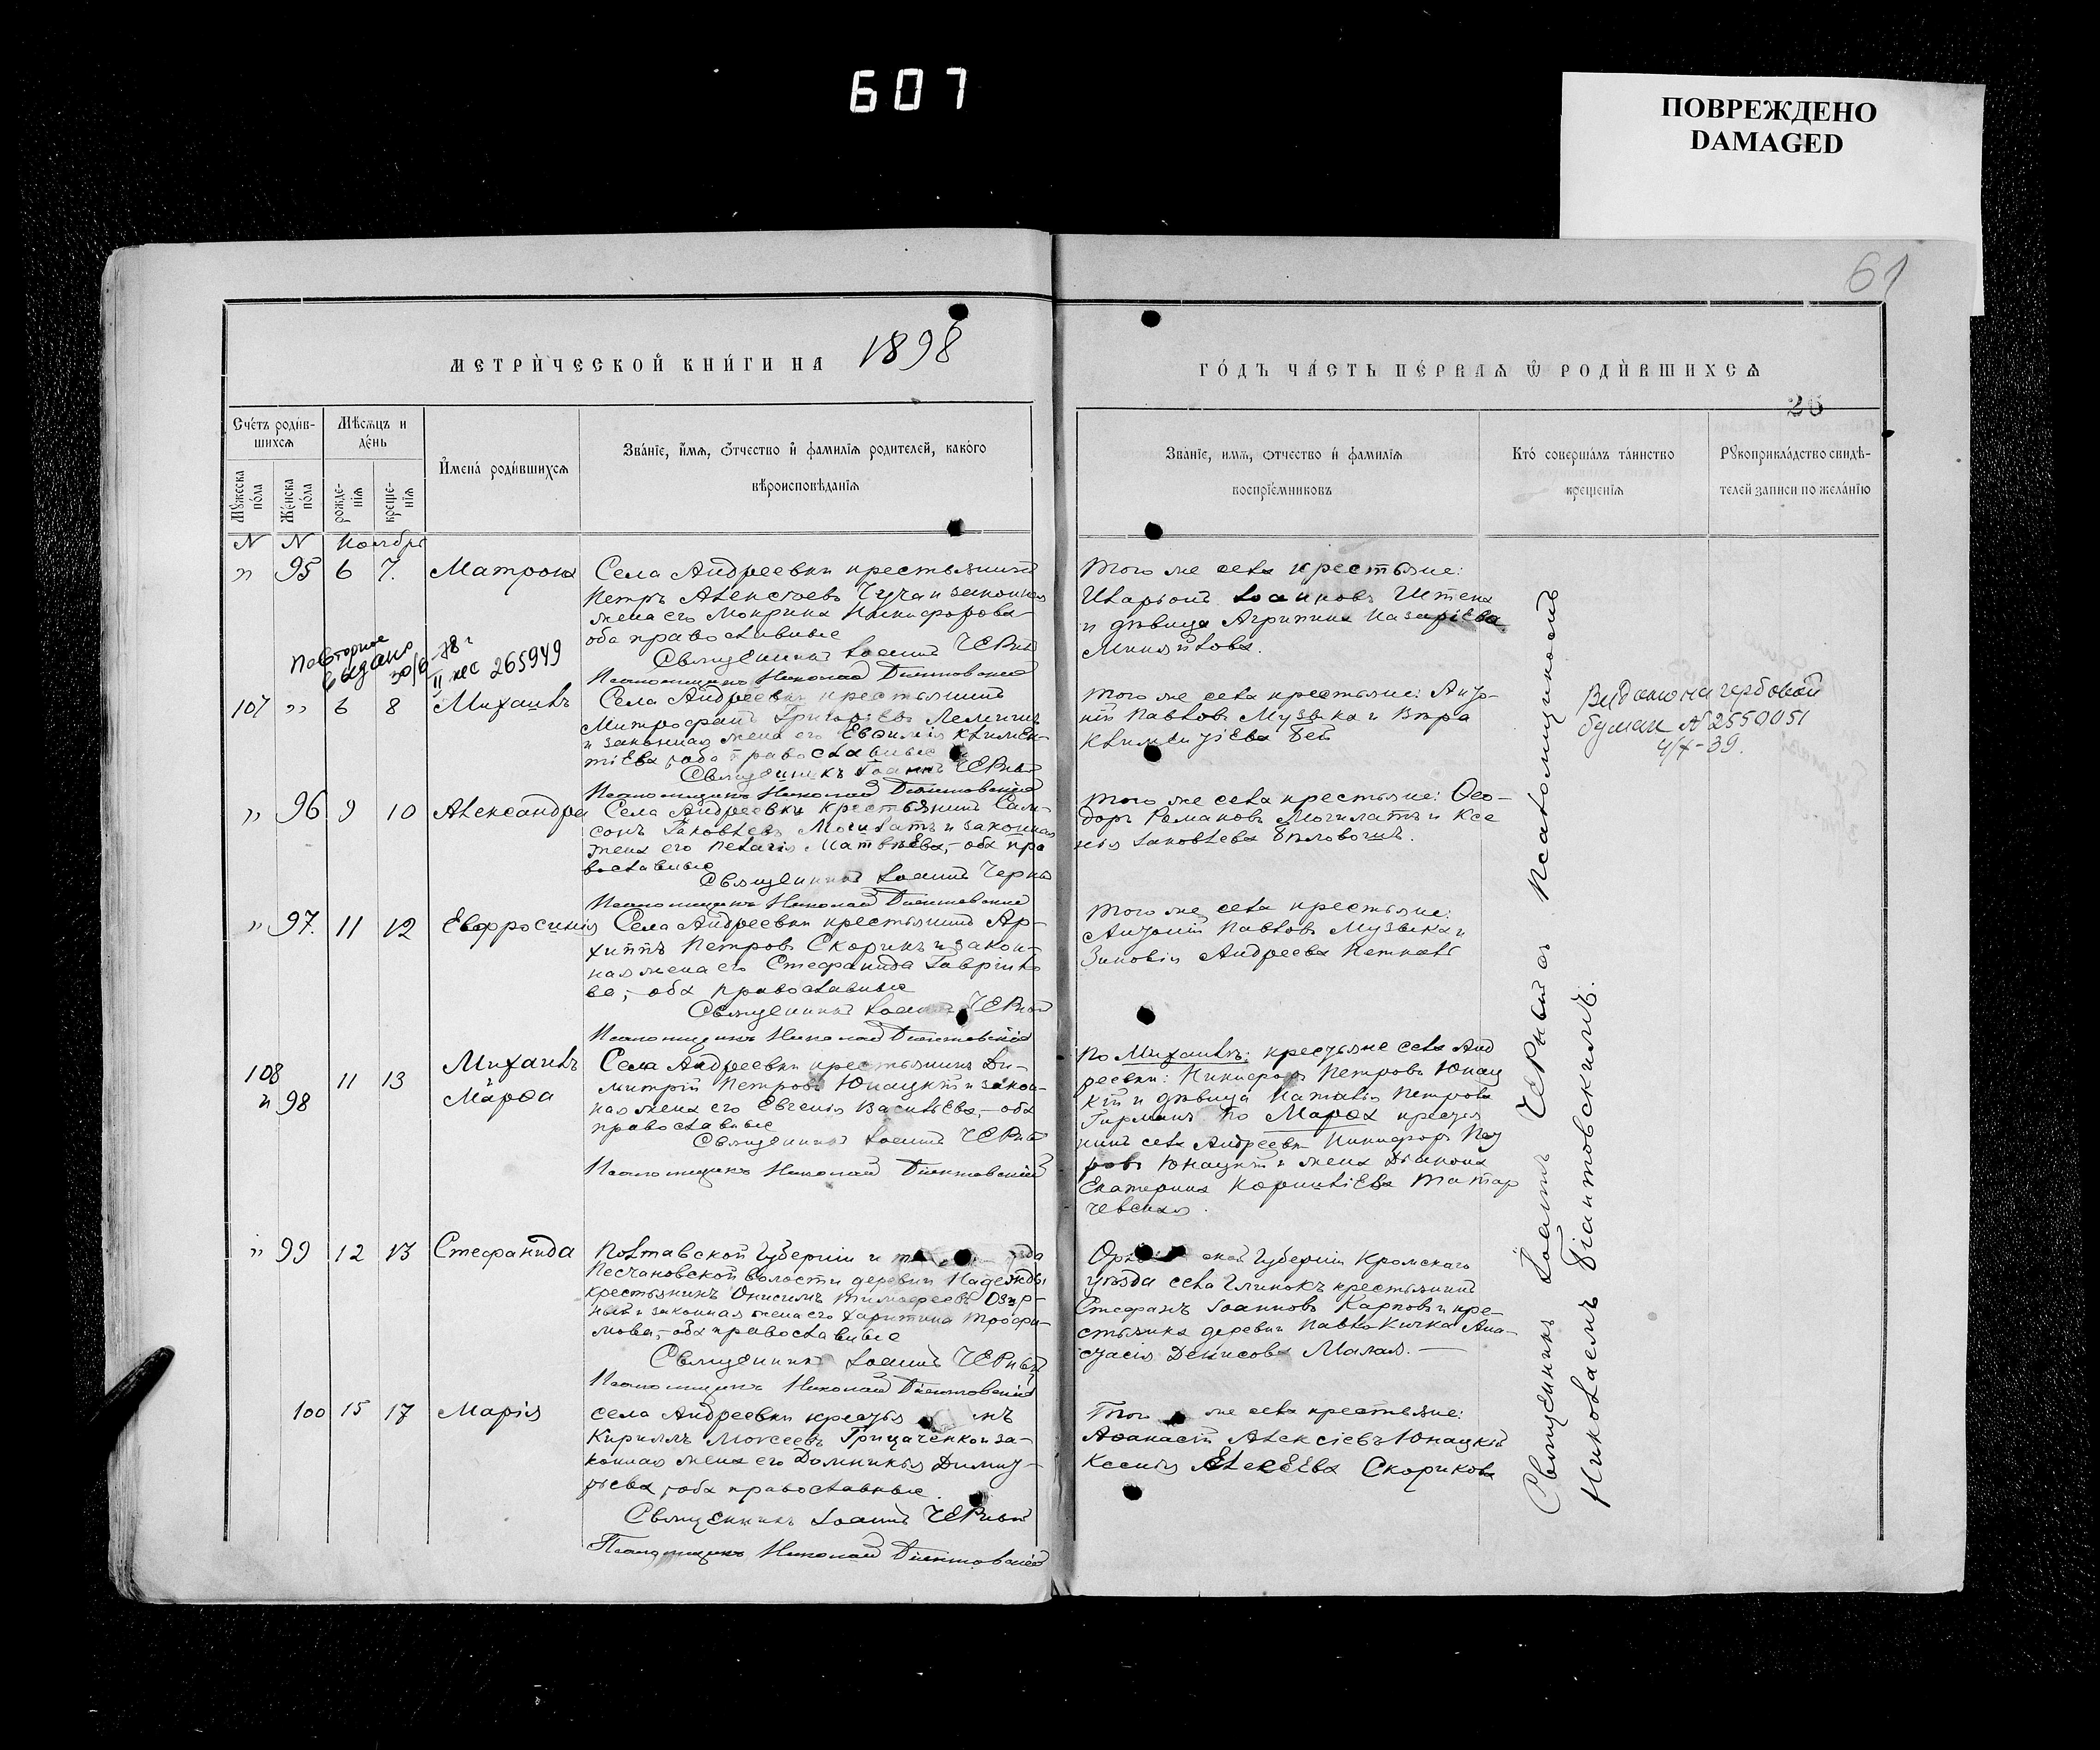 607
ПОВРЕЖДЕНО
DAMAGED
61
МЕТРИЧЕСКОЙ КНИГИ НА 1898
ГОДЪ ЧАСТЬ ПЕРВАЯ Ѡ РОДИВШИХСЯ
26
Счетъ родив-
шихся
Мужеска пола
Женска пола
Мѣсяцъ и
день
рожде-
нія
креще-
нія
Имена родившихся
Званіе, имя, отчество и фамилія родителей, какого
вѣроисповѣданія
Званіе, имя, отчество и фамилія
воспріемниковъ
Кто совершалъ таинство
крещенія
Рукоприкладство свидѣ-
телей записи по желанію
N N Ноябрь
" 95 6 7. Матрона
Села Андреевки крестьянинъ
Петръ Алексѣевъ и законная
жена его Мокрина Никифорова
оба православные
Священникъ Іоаннъ Черный
Псаломщикъ Николай Діантовскій
Того же села крестьяне:
Иларіонъ Іоанновъ
и дѣвица Агрипина Назаріева
Повторное
выдано
II 265949
107 " 6 8 Михаилъ
Села Андреевки крестьянинъ
Митрофанъ Григоріевъ
и законная жена его Евфимія Климен-
тіева, оба православные
Священникъ Іоаннъ Черный
Псаломщикъ Николай Діантовскій
Того же села крестьяне: Анто-
ній Павловъ Музыка и Вѣра
Климентіева
Видано на гербовой
бумаги № 2550051
4/X-39.
" 96 9 10 Александра
Села Андреевки крестьянинъ Сам-
сонъ Яковлевъ Могилатъ и законная
жена его Пелагія Матвѣева, - оба пра
вославные
Священникъ Іоаннъ Черный
Псаломщикъ Николай Діантовскій
Того же села крестьяне: Ѳео-
доръ Романовъ Могилатъ и Ксе
нія Іаковлева
" 97. 11 12 Евфросинія
Села Андреевки крестьянинъ Ар-
хиппъ Петровъ Скорикъ и закон-
ная жена его Стефанида Гаврило
ва, - оба православные
Священникъ Іоаннъ Черный
Псаломщикъ Николай Діантовскій
Того же села крестьяне:
Антоній Павловъ Музыка и
Зиновія Андреева
108 11 13 Михаилъ
" 98 Марѳа
Села Андреевки крестьянинъ Ди-
митрій Петровъ Юнацкій и закон-
ная жена его Евгенія Васильева, - оба
православные
Священникъ Іоаннъ Черный
Псаломщикъ Николай Діантовскій
По Михаилъ: крестьяне села Анд
реевки: Никифоръ Петровъ Юнац
кій и дѣвица Наталія Петрова
По Марѳа крестья
нинъ села Андреевки Никифоръ Пет
ровъ Юнацкій и жена Діакона
Екатерина Корниліева Татар
чевская.
" 99 12 13 Стефанида
Полтавской Губерніи и уѣзда
Песчановской волости деревни Надежды
крестьянинъ Онисимъ Тимоѳеевъ
и законная жена его Харитина Трофи-
мова, - оба православные
Священникъ Іоаннъ Черный
Псаломщикъ Николай Діантовскій
Губерніи Кромскаго
уѣзда села Глинокъ крестьянинъ
Стефанъ Іоанновъ Карповъ и кре-
стьянка деревни Ана-
стасія Денисова Малая. -
100 15 17 Марія
села Андреевки
Кириллъ Моисеевъ Грицаченко и за-
конная жена его Домникія Димит-
ріева, оба православные.
Священникъ Іоаннъ Черный
Псаломщикъ Николай Діантовскій
Того же села крестьяне:
Аѳанасій Алексіевъ Юнацкій
Ксенія Алексѣева Скорикова
Священникъ Іоаннъ Черный съ Псаломщикомъ
Николаемъ Діантовскимъ.